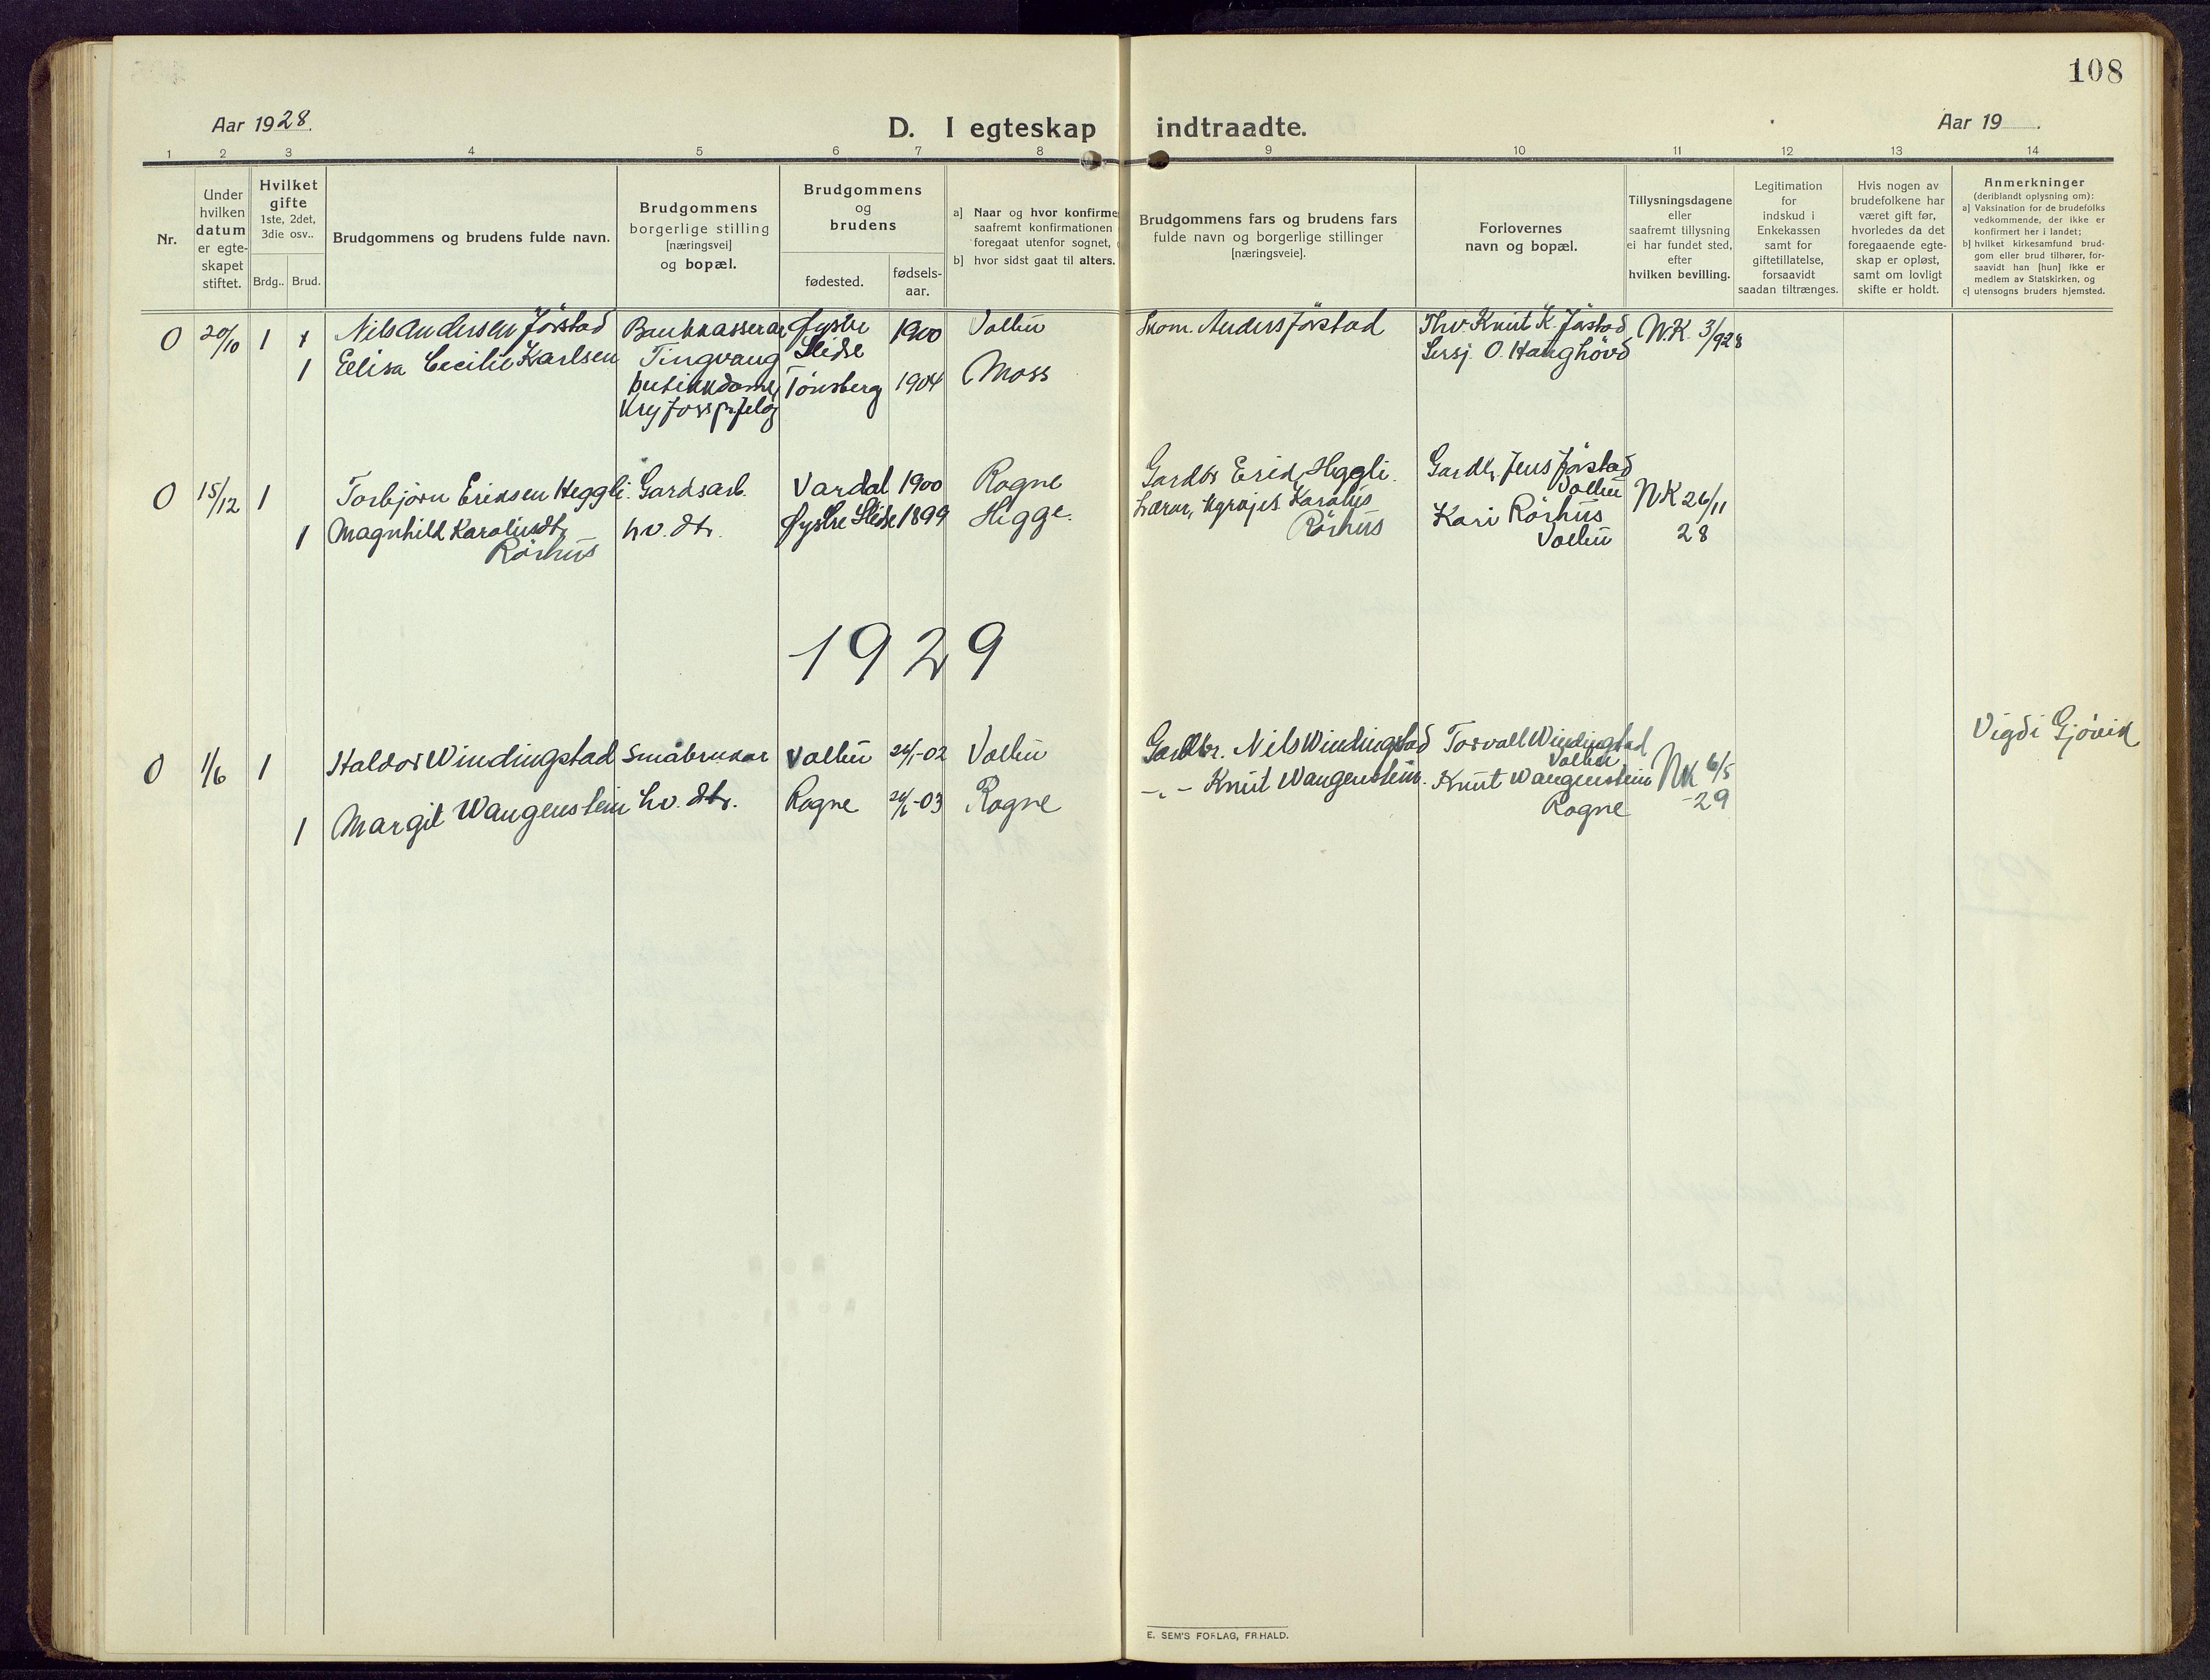 108
Aar 1928.
D. I egteskap indtraadte.
Aar 19 .
1 2 3 4 5 6 7 8 9 10 11 12 13 14
Nr.
Under
hvilken
datum
er egte-
skapet
stiftet.
Hvilket
gifte
1ste, 2det,
3die osv..
Brdg.. Brud.
Brudgommens og brudens fulde navn.
Brudgommens
borgerlige stilling
[næringsvei]
og bopæl.
Brudgommens
og
brudens
fødested.
fødsels-
aar.
a] Naar og hvor konfirme
saafremt konfirmationen
foregaat utenfor sognet,
b] hvor sidst gaat til alters.
Brudgommens fars og brudens fars
fulde navn og borgerlige stillinger
[næringsveie].
Forlovernes
navn og bopæl.
Tillysningsdagene
eller
saafremt tillysning
ei har fundet sted,
efter
hvilken bevilling.
Legitimation
for
indskud i
Enkekassen
samt for
giftetillatelse,
forsaavidt
saadan tiltrænges.
Hvis nogen av
brudefolkene har
været gift før,
hvorledes da det
foregaaende egte-
skap er opløst,
samt om lovligt
skifte er holdt.
Anmerkninger
(deriblandt oplysning om):
a] Vaksination for de brudefolks
vedkommende, der ikke er
konfirmert her i landet;
b] hvilket kirkesamfund brud-
gom eller brud tilhører, for-
saavidt han [hun] ikke er
medlem av Statskirken, og
c] utensogns bruders hjemsted.
0 20/10 1 Nils Andersen Jörstad Bankkasserar Øystre 1900 Volbu Skom. Anders Jörstad Thv. Knut K. Jörstad N.K. 3/9 28
1 Elisa Cecilie Karlsen Tingvang Slidre Sersj. O. Haughövd
butikkdame Tönsberg 1904 Moss
0 15/12 1 Torbjörn Eriksen Heggli Gardsarb. Vardal 1900 Rogne Gardbr Erik Heggli. Gardbr Jens Jörstad
Volbu
1 Magnhild Karolusdtr hv. dtr. Øystre Slidre 1899 Hegge. Lærar, Karolus Kari Rörhus NK 26/11
Rörhus Rörhus Volbu 28
1929
0 1/6 1 Haldor Windingstad Småbrukar Volbu 24/1-02 Volbu Gardbr. Nils Windingstad Torvall Windingstad Vigdi Gjövik
Volbu NK 6/5
1 Margit Wangenstein hv. dtr. Rogne -03 Rogne -"- Knut Wangenstein. Knut Wangenstein -29
Rogne
E. SEM'S FORLAG, FR.HALD.